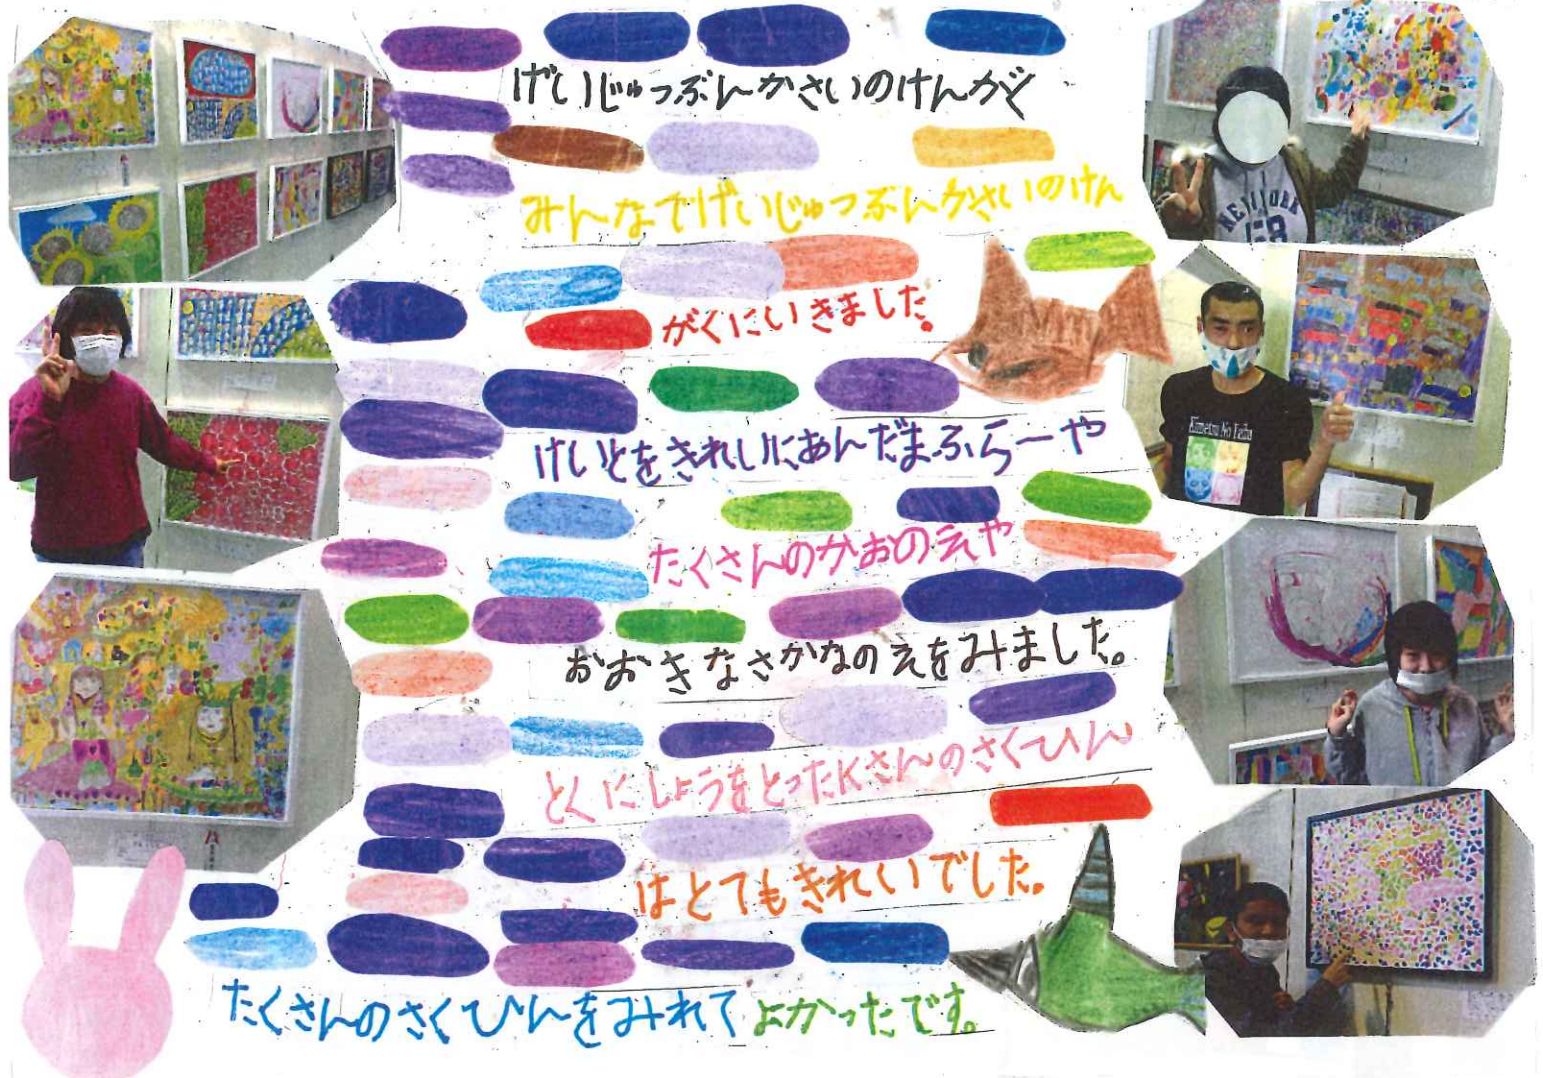 げいじゅつぶんかさいのけんがく
みんなでげいじゅつぶんかさいのけん
がくにいきました。
けいとをきれいにあんだまふらーや
たくさんのかおのえや
おおきなさかなのえをみました。
とくにしょうをとったKさんのさくひん
はとてもきれいでした。
たくさんのさくひんをみれてよかったです。